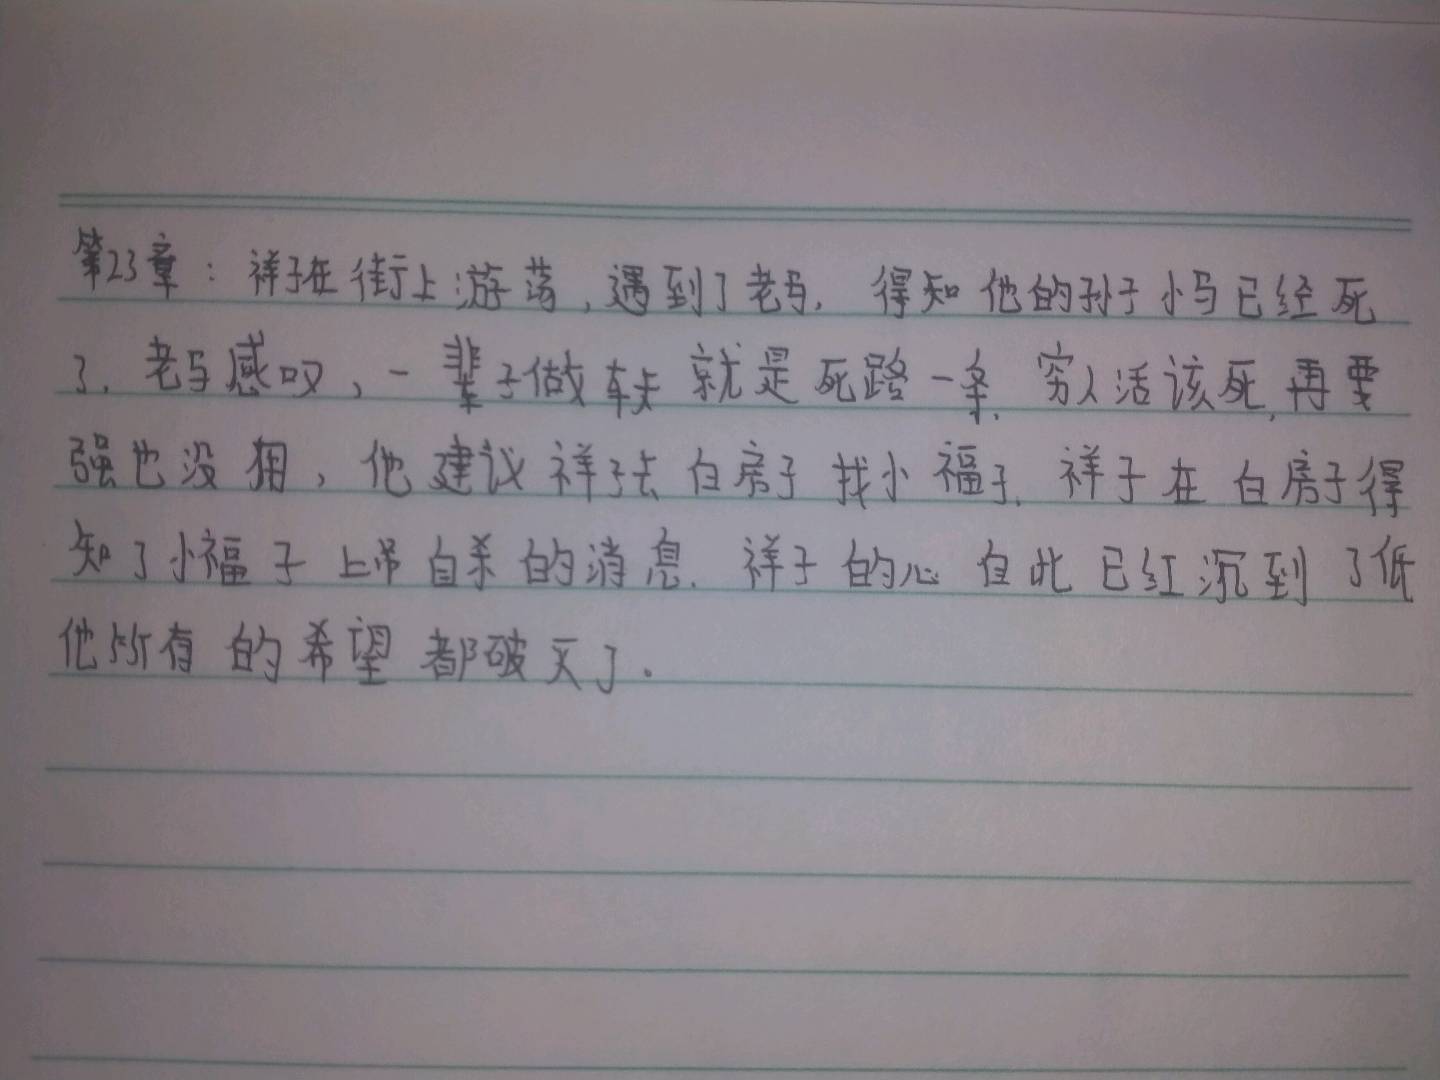 第23章：祥子在街上游荡,遇到了老马.得知他的孙子小马已经死
了.老马感叹,一辈子做车夫就是死路一条.穷人活该死,再要
强也没用,他建议祥子去白房子找小福子.祥子在白房子得
知了小福子上吊自杀的消息.祥子的心自此已经沉到了低
他所有的希望都破灭了。